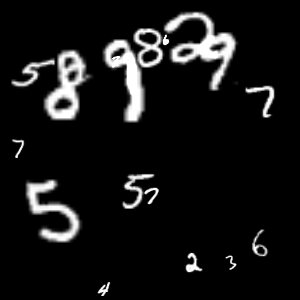 5 8 9 8 6 2 9 7
7
5 5 7
2 3 6
4